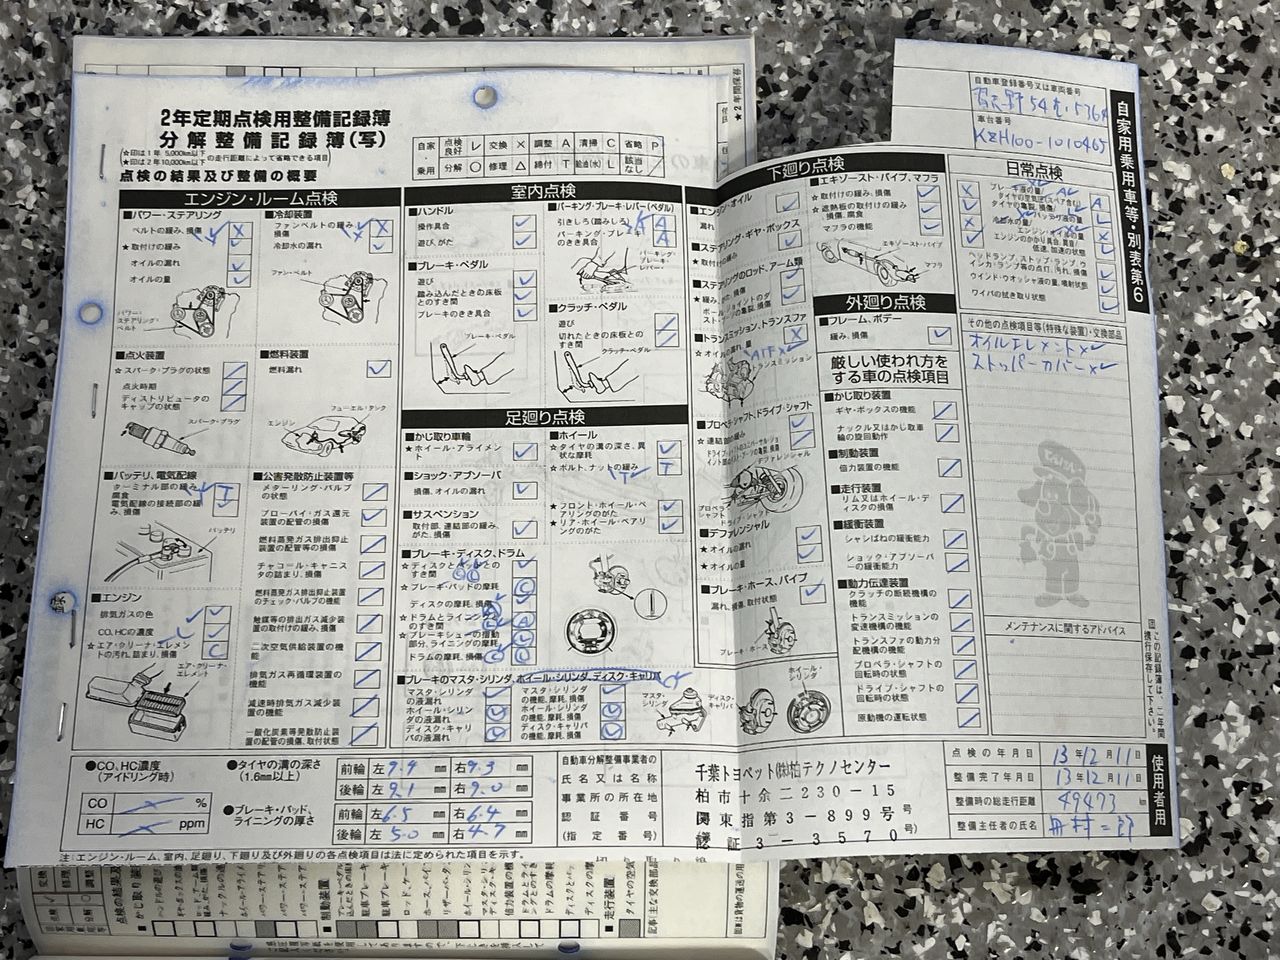 2年定期点検用整備記録簿
分解整備記録簿(写)
★印は1年 5,000km以下
☆印は2年10,000km以下 の走行距離によって省略できる項目
点検の結果及び整備の概要
自家・乗用
点検良好 レ 交換 × 調整 A 清掃 C 省略 P
分解 ○ 修理 △ 締付 T 給油(水) L 該当なし ／
エンジン・ルーム点検
■パワー・ステアリング
ベルトの緩み、損傷
★取付けの緩み
オイルの漏れ
オイルの量
パワー・ステアリング・ベルト
■冷却装置
ファンベルトの緩み、損傷
冷却水の漏れ
ファン・ベルト
■点火装置
☆スパーク・プラグの状態
点火時期
ディストリビュータのキャップの状態
スパーク・プラグ
■燃料装置
燃料漏れ
フューエル・タンク
エンジン
■バッテリ、電気配線
ターミナル部の緩み、腐食
電気配線の接続部の緩み、損傷
バッテリ
■エンジン
排気ガスの色
CO、HCの濃度
★エア・クリーナ・エレメントの汚れ、詰まり、損傷
エア・クリーナ・エレメント
■公害発散防止装置等
メターリング・バルブの状態
ブローバイ・ガス還元装置の配管の損傷
燃料蒸発ガス排出抑止装置の配管等の損傷
チャコール・キャニスタの詰まり、損傷
燃料蒸発ガス排出抑止装置のチェック・バルブの機能
触媒等の排出ガス減少装置の取付けの緩み、損傷
二次空気供給装置の機能
排気ガス再循環装置の機能
減速時排気ガス減少装置の機能
一酸化炭素等発散防止装置の配管の損傷、取付状態
室内点検
■ハンドル
操作具合
遊び、がた
■ブレーキ・ペダル
遊び
踏み込んだときの床板とのすき間
ブレーキのきき具合
ブレーキ・ペダル
■パーキング・ブレーキ・レバー(ペダル)
引きしろ(踏みしろ)
パーキング・ブレーキのきき具合
パーキング・ブレーキ・レバー
■クラッチ・ペダル
遊び
切れたときの床板とのすき間
クラッチ・ペダル
足廻り点検
■かじ取り車輪
☆ホイール・アライメント
■ショック・アブソーバ
損傷、オイルの漏れ
■サスペンション
取付部、連結部の緩み、がた、損傷
■ブレーキ・ディスク、ドラム
☆ブレーキ・パッドの摩耗
ディスクの摩耗、損傷
☆ブレーキシューの摺動部分、ライニングの摩耗
ドラムの摩耗、損傷
■ホイール
☆タイヤの溝の深さ、異状な摩耗
☆ボルト、ナットの緩み
★フロント・ホイール・ベアリングのがた
★リア・ホイール・ベアリングのがた
■ブレーキのマスタ・シリンダ、ホイール・シリンダ、ディスク・キャリパ
マスタ・シリンダの液漏れ
ホイール・シリンダの液漏れ
ディスク・キャリパの液漏れ
マスタ・シリンダの機能、摩耗、損傷
ホイール・シリンダの機能、摩耗、損傷
ディスク・キャリパの機能、摩耗、損傷
マスタ・シリンダ
ディスク・キャリパ
ホイール・シリンダ
下廻り点検
■エンジン・オイル
■ステアリング・ギヤ・ボックス
★取付けの緩み
ATF×
■プロペラ・シャフト、ドライブ・シャフト
デファレンシャル
プロペラ・シャフト
ドライブ・シャフト
■デファレンシャル
★オイルの漏れ
★オイルの量
■ブレーキ・ホース、パイプ
漏れ、損傷、取付状態
ブレーキ・ホース
■エキゾースト・パイプ、マフラ
★取付けの緩み、損傷
☆遮熱板の取付けの緩み、損傷、腐食
マフラの機能
エキゾースト・パイプ
マフラ
外廻り点検
■フレーム、ボデー
緩み、損傷
厳しい使われ方をする車の点検項目
■かじ取り装置
ギヤ・ボックスの機能
ナックル又はかじ取車輪の旋回動作
■制動装置
倍力装置の機能
■走行装置
リム又はホイール・ディスクの損傷
■緩衝装置
シャシばねの緩衝能力
ショック・アブソーバーの緩衝能力
■動力伝達装置
クラッチの断続機構の機能
トランスミッションの変速機構の機能
トランスファの動力分配機構の機能
プロペラ・シャフトの回転時の状態
ドライブ・シャフトの回転時の状態
原動機の運転状態
自動車登録番号又は車両番号
車台番号
KZH100-1010465
日常点検
ブレーキ液の量
タイヤの空気圧(スペア含む)
タイヤの亀裂、損傷
冷却水の量
バッテリ液の量
エンジン・オイルの量
エンジンのかかり具合、異音
低速、加速の状態
ヘッドランプ、ストップ・ランプ、ウインカ・ランプ等の点灯、汚れ、損傷
ウインド・ウオッシャ液の量、噴射状態
ワイパの拭き取り状態
その他の点検項目等(特殊な装置)・交換部品
オイルエレメント×
ストッパーカバー×
メンテナンスに関するアドバイス
自家用乗用車等・別表第6
この記録簿は、二年間携行保存して下さい。
●CO、HC濃度(アイドリング時)
CO %
HC ppm
●タイヤの溝の深さ(1.6mm以上)
前輪 左 9.4 mm 右 9.3 mm
後輪 左 9.1 mm 右 9.0 mm
●ブレーキ・パッド、ライニングの厚さ
前輪 左 6.5 mm 右 6.4 mm
後輪 左 5.0 mm 右 4.7 mm
自動車分解整備事業者の
氏名又は名称
事業所の所在地
認証番号
(指定番号)
千葉トヨペット(株)柏テクノセンター
柏市十余二230-15
関東指第3-899号
認証3-3570号)
点検の年月日 13年12月11日
整備完了年月日 13年12月11日
整備時の総走行距離 49473 km
整備主任者の氏名
使用者用
注:エンジン・ルーム、室内、足廻り、下廻り及び外廻りの各点検項目は法に定められた項目を示す。
★2年間保存